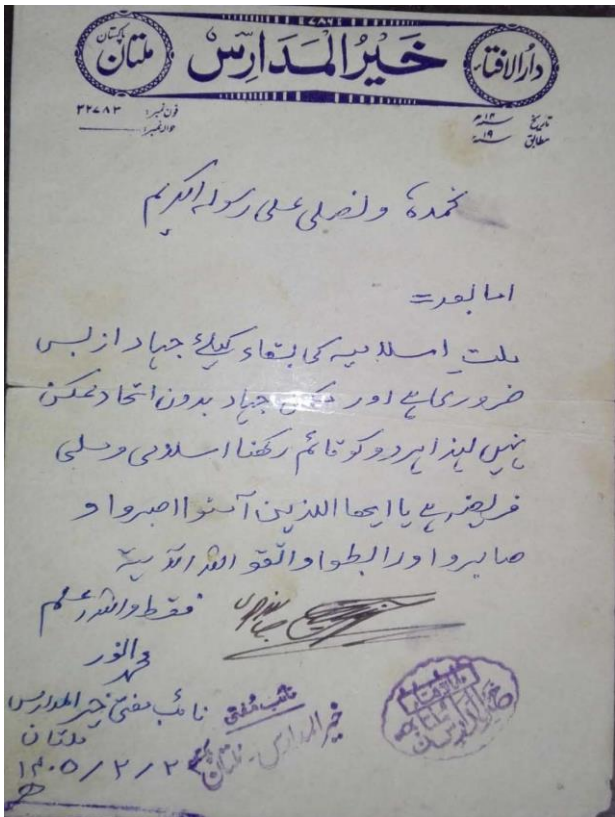 ۷۸۶
دارُ الافتاء خَیرُ المَدارِسْ ملتان پاکستان
تاریخ ۱۴ھ
مطابق ۱۹ء
فون نمبر: ۳۲۷۸۳
حوالہ نمبر:
نحمدہٗ ونصلی علی رسولہ الکریم
اما بعد =
ملت اسلامیہ کی بقاء کیلئے جہاد از بس
ضروری ہے اور جہاد بدون اتحاد ممکن
نہیں لہذا ہر دو کو قائم رکھنا اسلامی و ملی
فریضہ ہے یا ایھا الذین آمنوا اصبروا و
صابروا ورابطوا واتقوا اللہ الآیة
فقط واللہ اعلم
محمد انور
نائب مفتی خیر المدارس
ملتان
۱۴۰۵/۲/۲ھ
نائب مفتی
خیر المدارس۔ ملتان